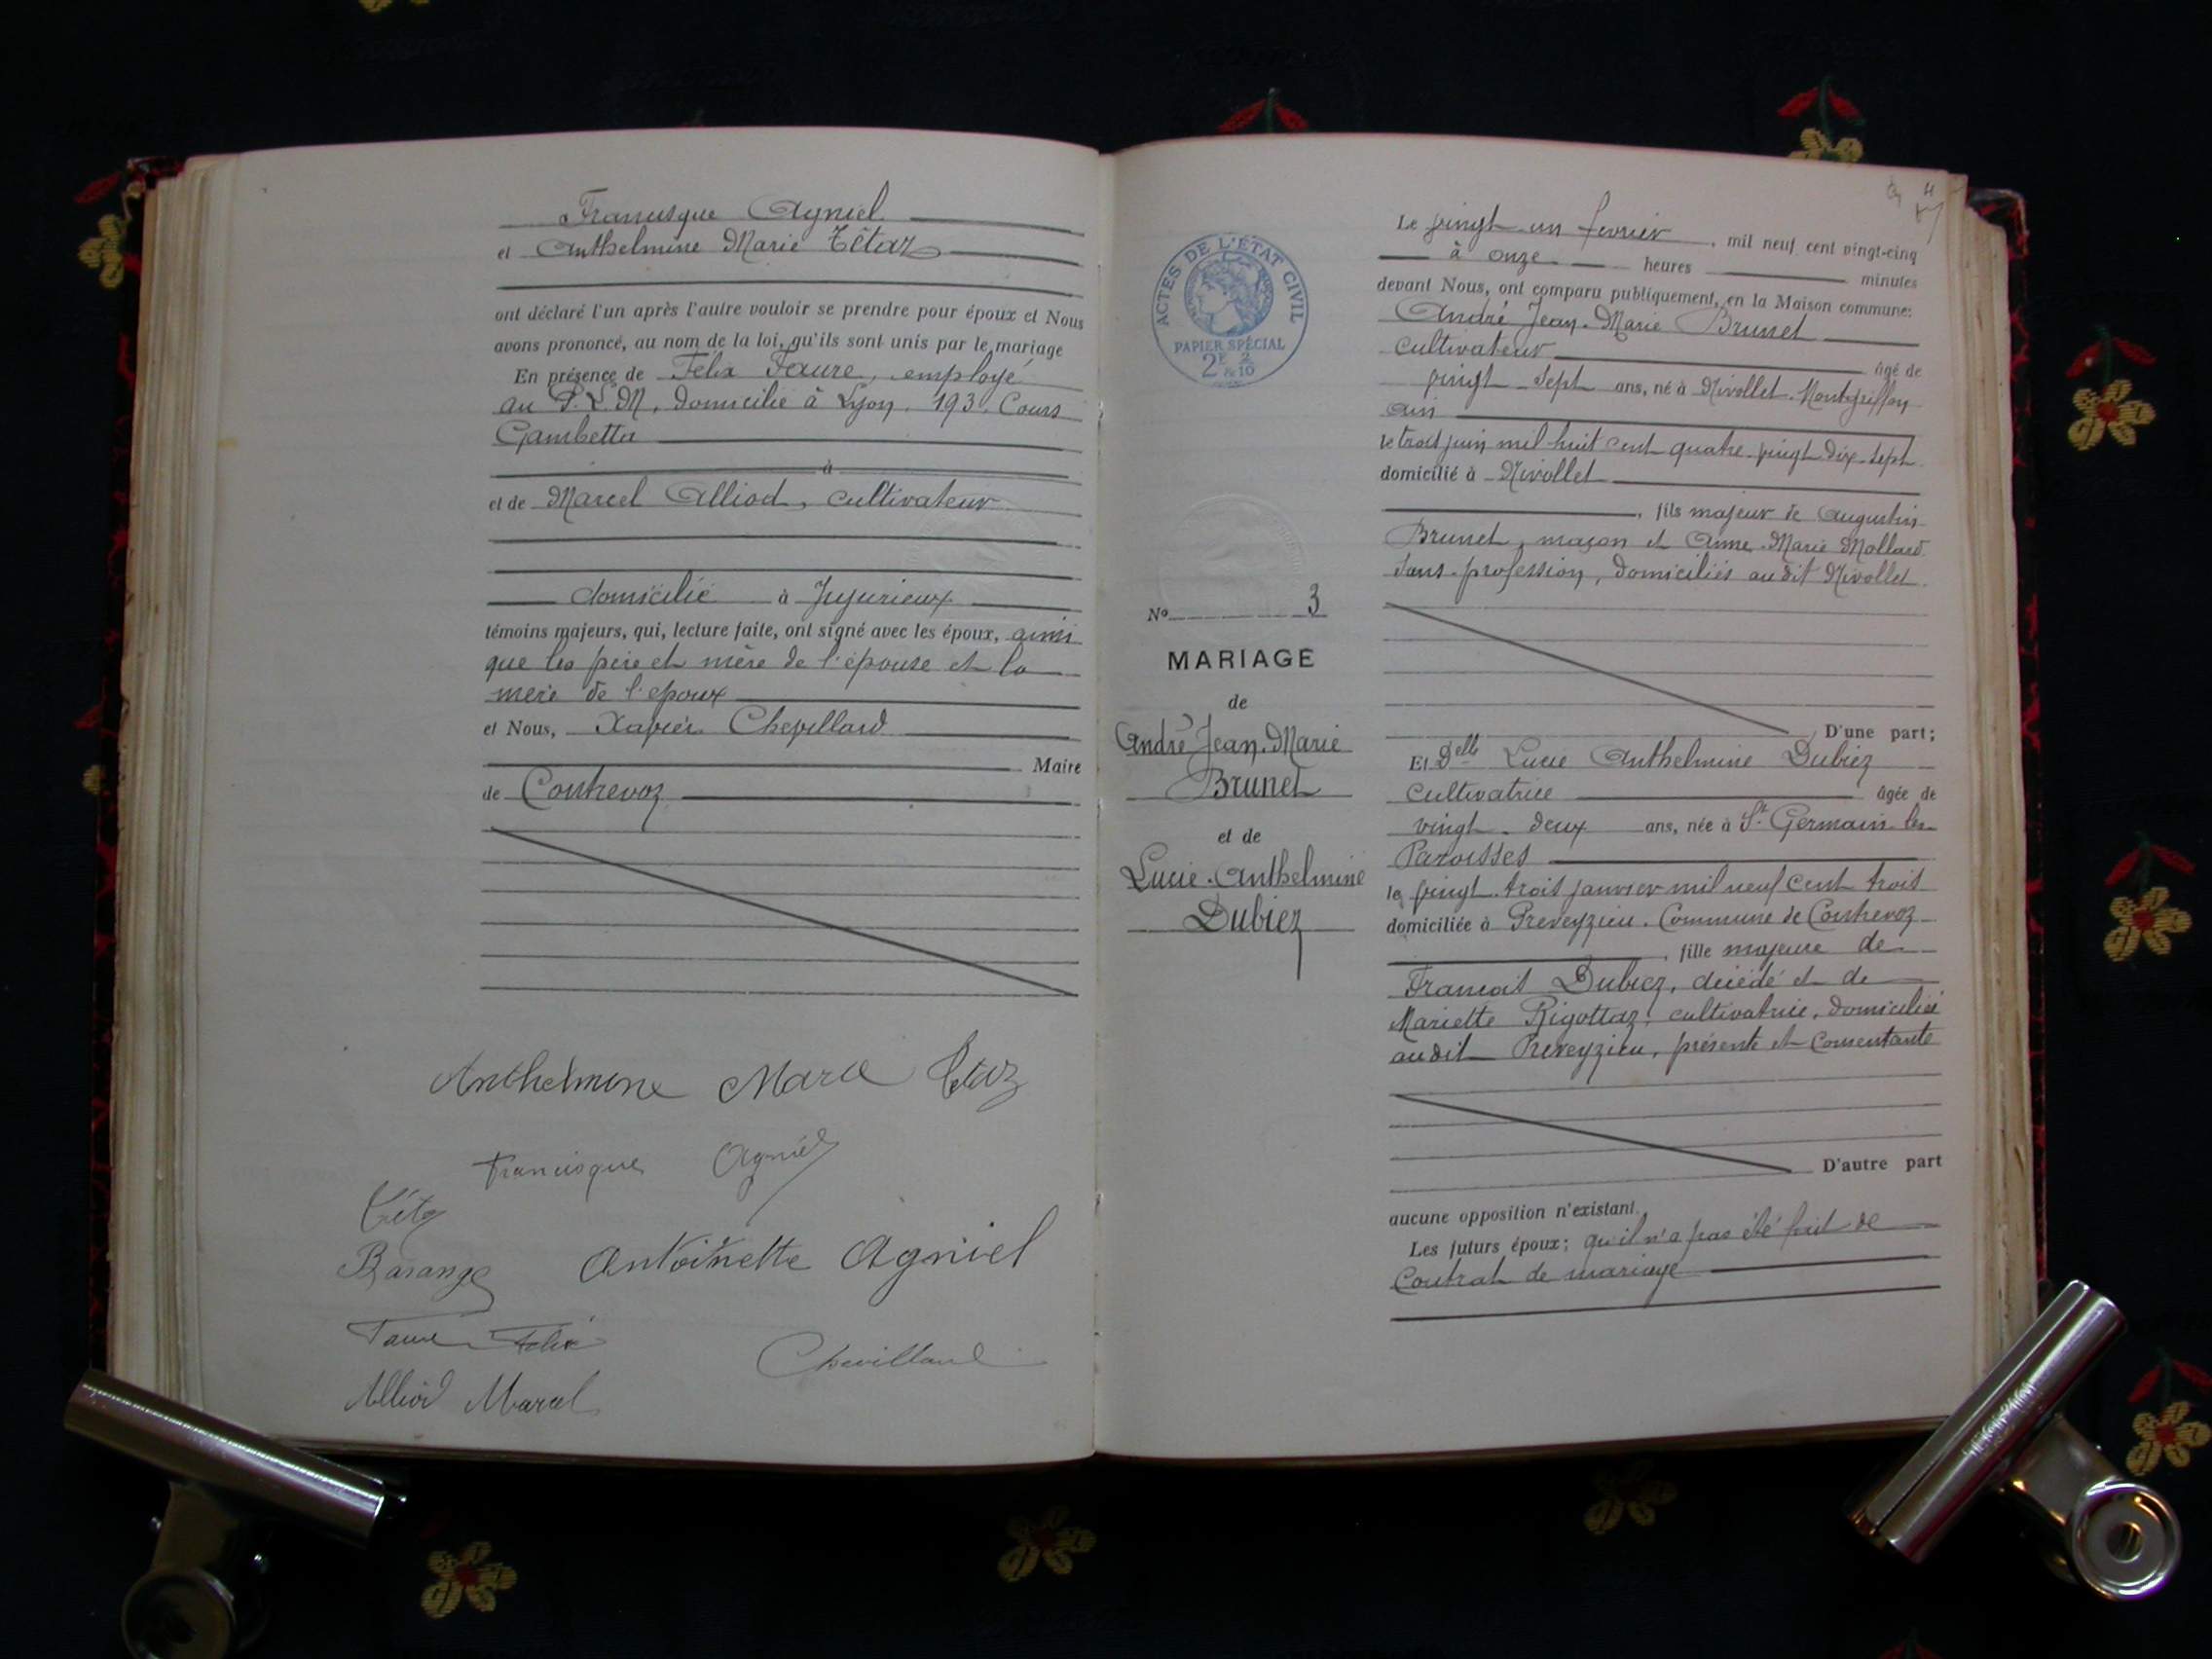 Francisque Agniel
et Anthelmine Marie Tétaz
ont déclaré l'un après l'autre vouloir se prendre pour époux et Nous
avons prononcé, au nom de la loi, qu'ils sont unis par le mariage
En présence de Félix Faure, employé
au P.L.M, domicilié à Lyon, 193, Cours
Gambetta
à
et de Marcel Alliod, cultivateur
domicilié à Jujurieux
témoins majeurs, qui, lecture faite, ont signé avec les époux, ainsi
que les père et mère de l'épouse et la
mère de l'époux
et Nous, Xavier Chevillard
Maire
de Contrevoz
Anthelmine Marie Tétaz
Francisque Agniel
Tétaz
Antoinette Agniel
Faure Félix
Chevillard
Alliod Marcel
ACTES DE L'ÉTAT CIVIL
PAPIER SPÉCIAL
2F 2/10
N° 3
MARIAGE
de
André Jean-Marie
Brunet
et de
Lucie-Anthelmine
Dubiez
Le vingt un février, mil neuf cent vingt-cinq
à onze heures minutes
devant Nous, ont comparu publiquement, en la Maison commune:
André Jean-Marie Brunet
cultivateur âgé de
vingt-sept ans, né à Nivollet-Montgriffon
Ain
le trois juin mil huit cent quatre-vingt-dix-sept
domicilié à Nivollet
, fils majeur de Augustin
Brunet, maçon et Anne-Marie Mollard
sans profession, domiciliés audit Nivollet
D'une part;
Et Delle Lucie Anthelmine Dubiez
Cultivatrice âgée de
vingt-deux ans, née à St Germain les
Paroisses
le vingt-trois janvier mil neuf cent trois
domiciliée à Preveyzieu, Commune de Contrevoz
, fille majeure de
François Dubiez, décédé et de
Mariette Rigottaz, cultivatrice, domiciliée
audit Preveyzieu, présente et consentante
D'autre part
aucune opposition n'existant.
Les futurs époux; qu'il n'a pas été fait de
Contrat de mariage